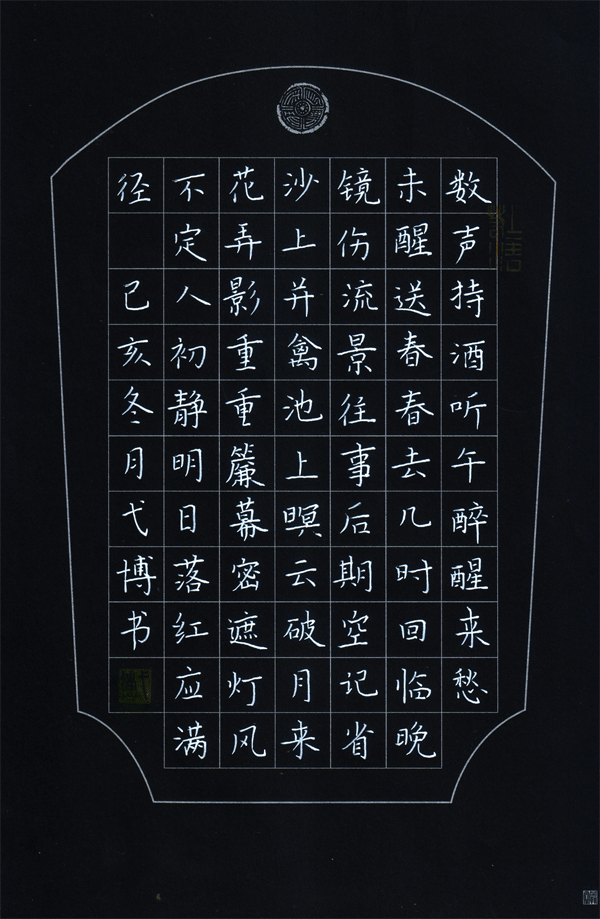 数声持酒听午醉醒来愁
未醒送春春去几时回临晚
镜伤流景往事后期空记省
沙上并禽池上暝云破月来
花弄影重重簾幕密遮灯风
不定人初静明日落红应满
径 己亥冬月弋博书